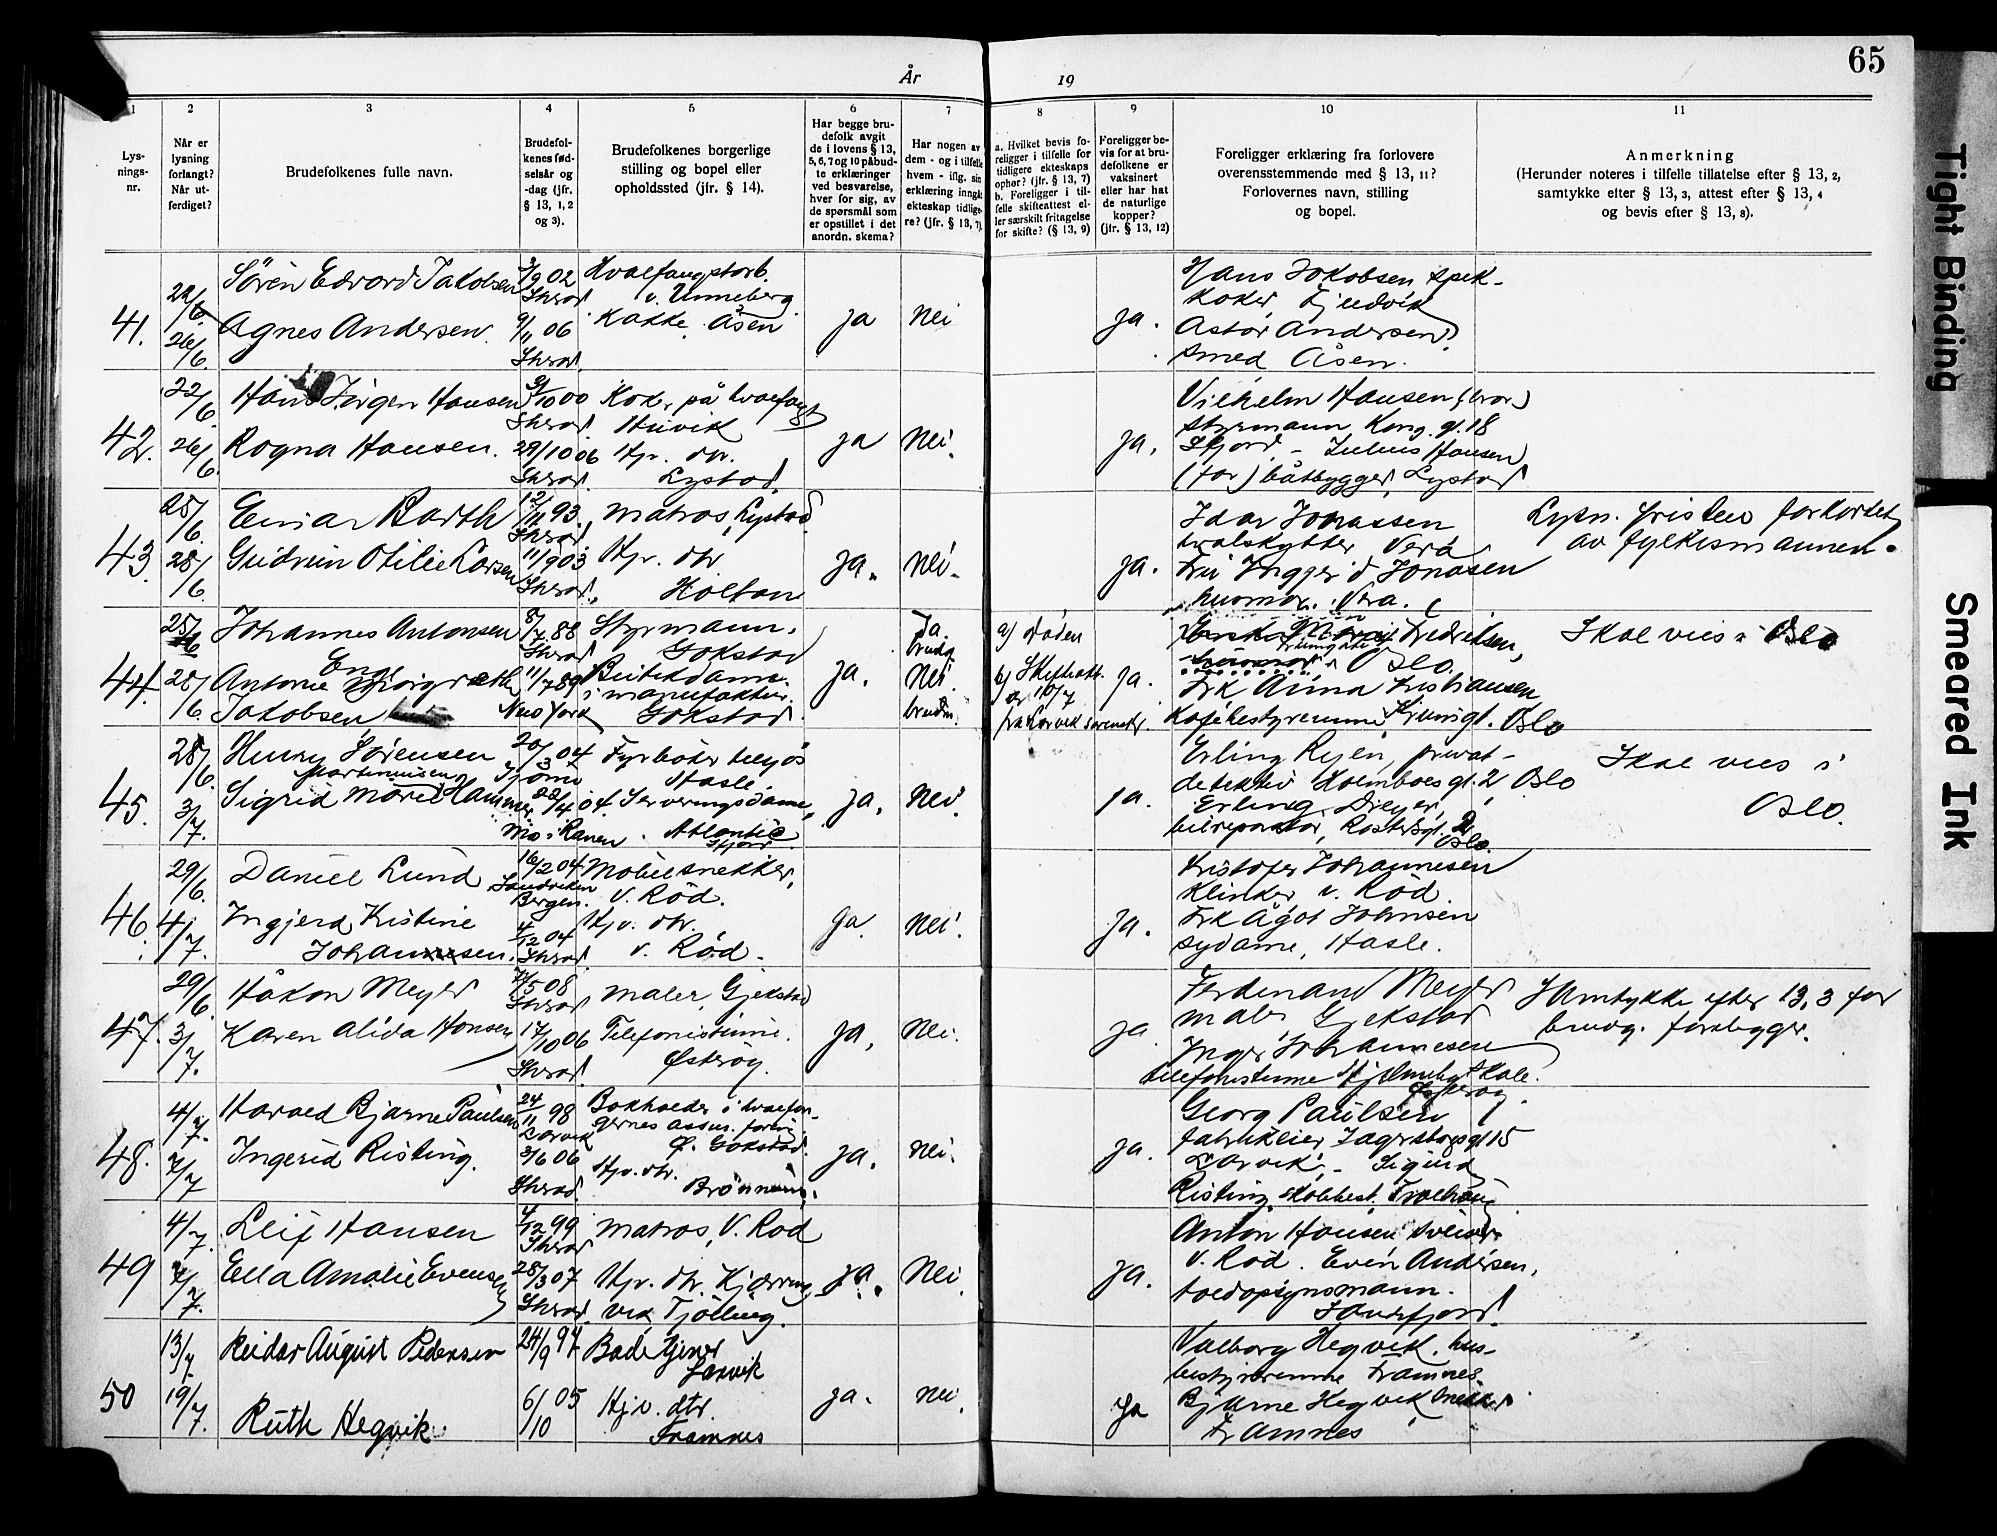 65
År 19
1 2 3 4 5 6 7 8 9 10 11
Lys-
nings-
nr.
Når er
lysning
forlangt?
Når ut-
ferdiget?
Brudefolkenes fulle navn.
Brudefol-
kenes fød-
selsår og
-dag (jfr.
§ 13, 1, 2
og 3).
Brudefolkenes borgerlige
stilling og bopel eller
opholdssted (jfr. § 14).
Har begge bru-
defolk avgit
de i lovens § 13,
5, 6, 7 og 10 påbud-
te erklæringer
ved besvarelse,
hver for sig, av
de spørsmål som
er opstillet i det
anordn. skema?
Har nogen av
dem - og i tilfelle
hvem - iflg. sin
erklæring inngått
ekteskap tidlige-
re? (jfr. § 13, 7).
a. Hvilket bevis fo-
religger i tilfelle for
tidligere ekteskaps
ophør? (jfr. § 13, 7)
b. Foreligger i til-
felle skifteattest el-
ler særskilt fritagelse
for skifte? (§ 13, 9)
Foreligger be-
vis for at bru-
defolkene er
vaksinert
eller har hat
de naturlige
kopper?
(jfr. § 13, 12)
Foreligger erklæring fra forlovere
overensstemmende med § 13, 11?
Forlovernes navn, stilling
og bopel.
Anmerkning
(Herunder noteres i tilfelle tillatelse efter § 13, 2,
samtykke efter § 13, 3, attest efter § 13, 4
og bevis efter § 13, 8).
41. 22/6 26/6
Sören Edvard Jakobsen 3/9 02 Hvalfangstarb.
v. Unneberg
Agnes Andersen 9/11 06 Kokke Åsen
ja nei ja.
Hans Jakobsen spek-
koker Fjeldvik
Astor Andersen
smed Åsen.
42. 22/6 26/6
Hans Jörgen Hansen 3/10 00 Kok på hvalfangst
Huvik
Ragna Hansen. 29/10 06 Hjv. dtr.
Lystad.
ja nei. ja.
Vilhelm Hansen (bror)
styrmann Kong. gt. 18
Sfjord - Julius Hansen
(far) båtbygger, Lystad
43. 25/6 28/6
Einar Barth 12/11 93. matros, Lystad
Gudrun Otilie Larsen 11/9 03 Hjv. dtr
Holtan
ja. nei. ja.
Idar Jonassen
hvalskytter Vera
Fru Inggerd Jonasen
husmor. Vera.
Lysn. fristen forkortet
av fylkesmannen.
44. 25/6 28/6
Johannes Antonsen 8/7 88 Styrmann.
Gokstad
Antonie Margreth 11/7 89 Butikdame
Jakobsen New York i manufaktur
Gokstad.
ja. Ja brudg. Nei. brud.
a) döden
b) Skifteatt.
av 10/7
fra Larvik sorenskr.
ja.
Fredriksen,
Oslo.
Frk Anna Kristiansen
kafébestyrerinne Oslo
Skal vies i Oslo
45. 28/6 3/7.
Henry Sörensen 20/3 04 Fyrböter
Martinuisen Tjöme Hasle
Sigrid Marie Hammer 22/4 04. Serveringsdame,
Mo i Ranen. Atlantic
Sfjord
ja. Nei. ja.
Erling Ryen, privat-
detektiv Holmboesgt. 2 Oslo
Erling Dreyer,
bilreparatör, 2
Oslo.
Skal vies i
Oslo.
46. 29/6. 4/7.
Daniel Lund 16/2 04 Möbelsnekker,
Sandviken
Bergen. V. Röd.
Ingjerd Kristine 4/12 04 Hjv. dtr.
Johannesen. v. Röd.
Ja. nei. Ja.
Kristofer Johannesen
klinker v. Röd.
Frk Ågot Johnsen
sydame, Hasle.
47. 29/6. 3/7.
Håkon Meyer 5 08 maler Gjekstad
Karen Alida Hansen 17/10 06 Telefonistinne.
Österöy.
ja, nei. ja
Ferdinand Meyer
maler Gjekstad
Inger Johannesen
telefonistinne skole.
Österöy.
Samtykke efter 13, 3 for
brudg. foreligger.
48. 4/7. 7/7
Harald Bjarne Paulsen 24/11 98 Bokholder i hvalfan-
Larvik gernes assur. foren.
Ö. Gokstad.
Ingerid Risting. 3/6 06 Hjv. dtr.
ja. nei. ja.
Georg Paulsen
fabrikkeier, Jagersborgsgt 15
Larvik, - Sigurd
Risting, skolebest.
49 4/7. 7/7.
Leif Hansen 4/12 99 matros, V. Röd
Ella Amalie Evensen 28/3 07 Hjv. dtr. Kjærring-
vik Tjölling.
ja. Nei. ja.
Anton Hansen sveiser
V. Röd. Even Andersen,
toldopsynsmann.
Sandefjord.
50 13/7 19/7.
Reidar August Pedersen 24/9 97 Badetjener
Larvik
Ruth Hegvik 6/10 05 Hjv. dtr.
Framnes
ja. nei. Ja
Valborg Hegvik, hus-
bestyrerinne Framnes.
Bjarne Hegvik snekker
Framnes
Tight Binding
Smeared Ink